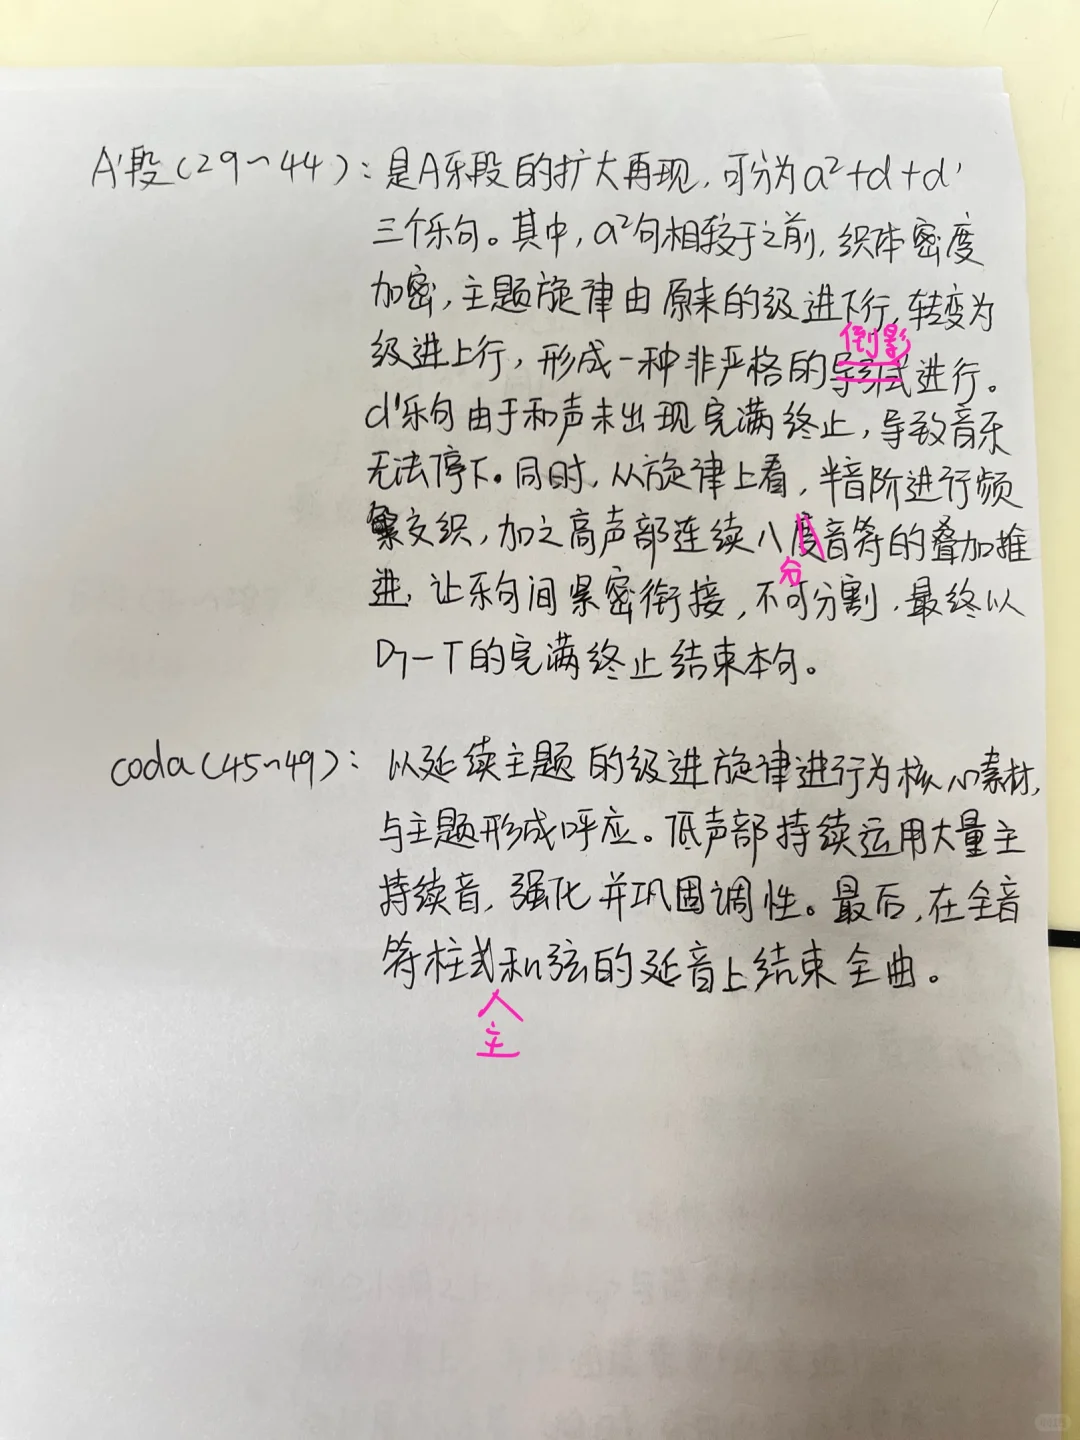 A'段(29~44):是A乐段的扩大再现,可分为a²+d+d'
三个乐句。其中,a²句相较于之前,织体密度
加密,主题旋律由原来的级进下行,转变为
倒影
级进上行,形成一种非严格的导引式进行。
d'乐句由于和声未出现完满终止,导致音乐
无法停下。同时,从旋律上看,半音阶进行频
繁交织,加之高声部连续八度音符的叠加推
分
进,让乐句间紧密衔接,不可分割,最终以
D7—T的完满终止结束本句。
coda(45~49):以延续主题的级进旋律进行为核心素材,
与主题形成呼应。低声部持续运用大量主
持续音,强化并巩固调性。最后,在全音
符柱式和弦的延音上结束全曲。
主